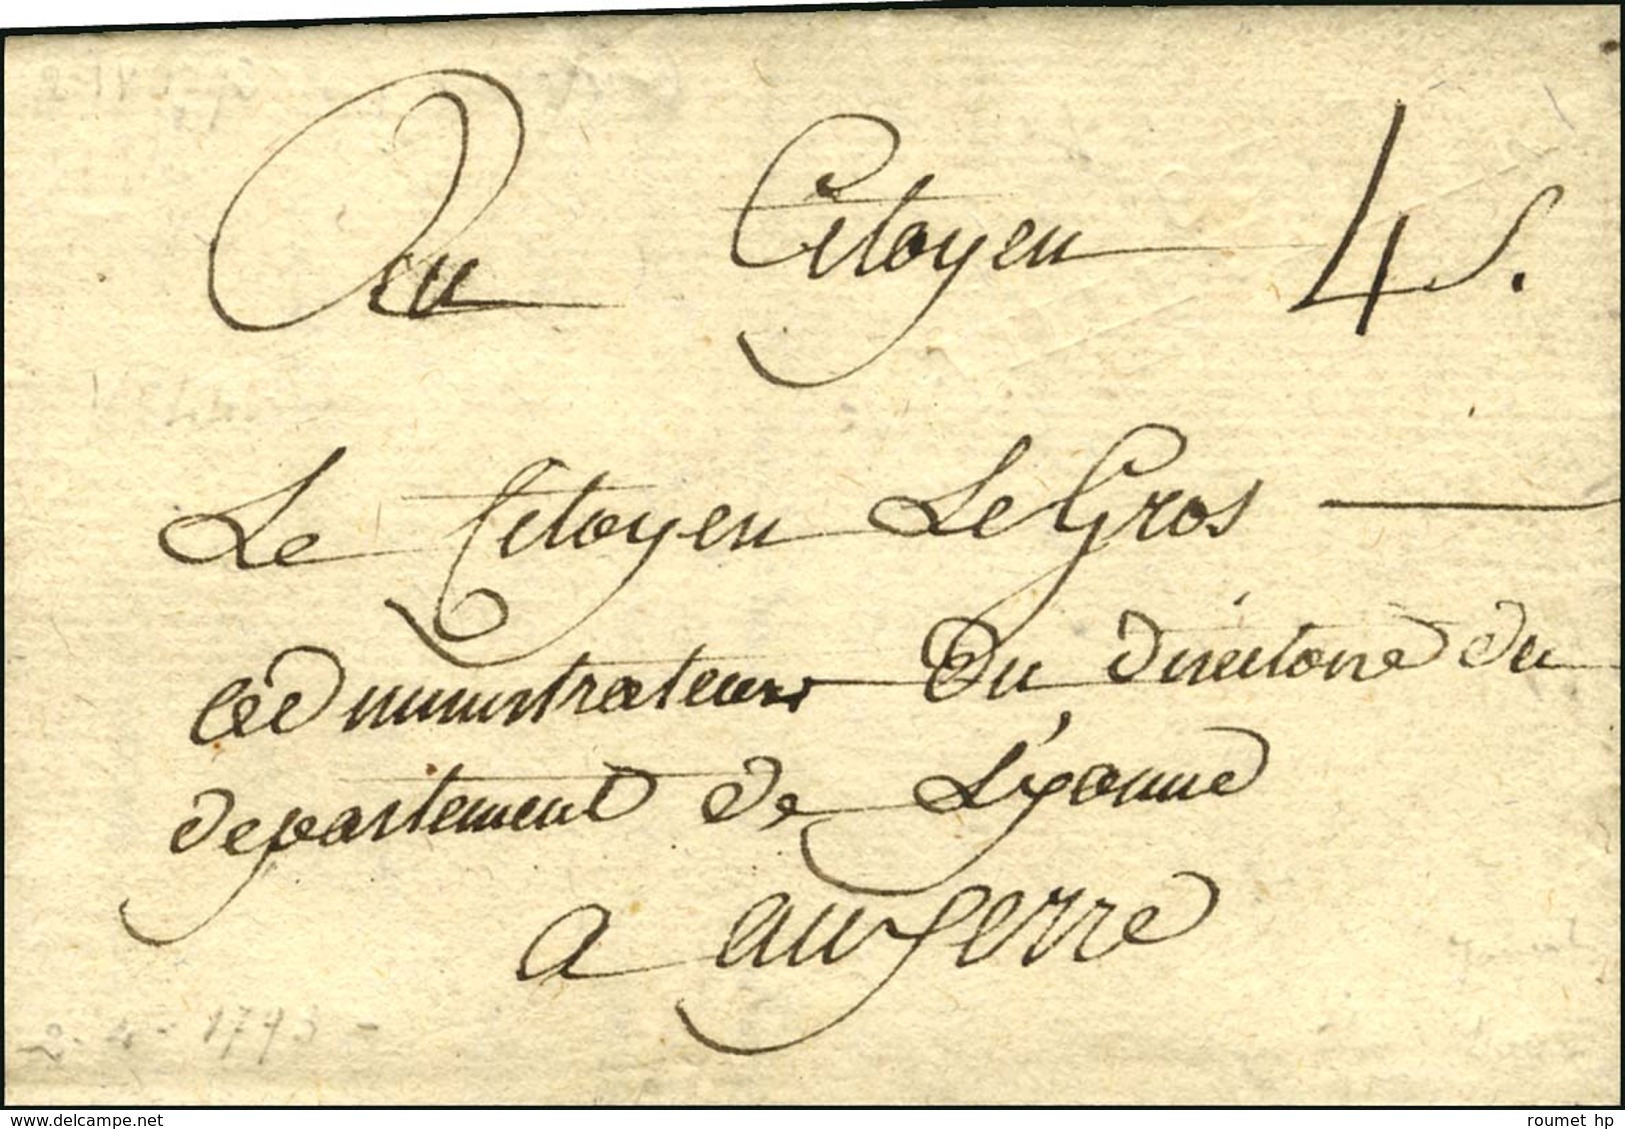 Au Citoyen 4 s.
Le Citoyen Le Gros
administrateur du directoire du
departement de L'yonne
a auxerre
2-4-1793-
www.delcampe.net
roumet hp